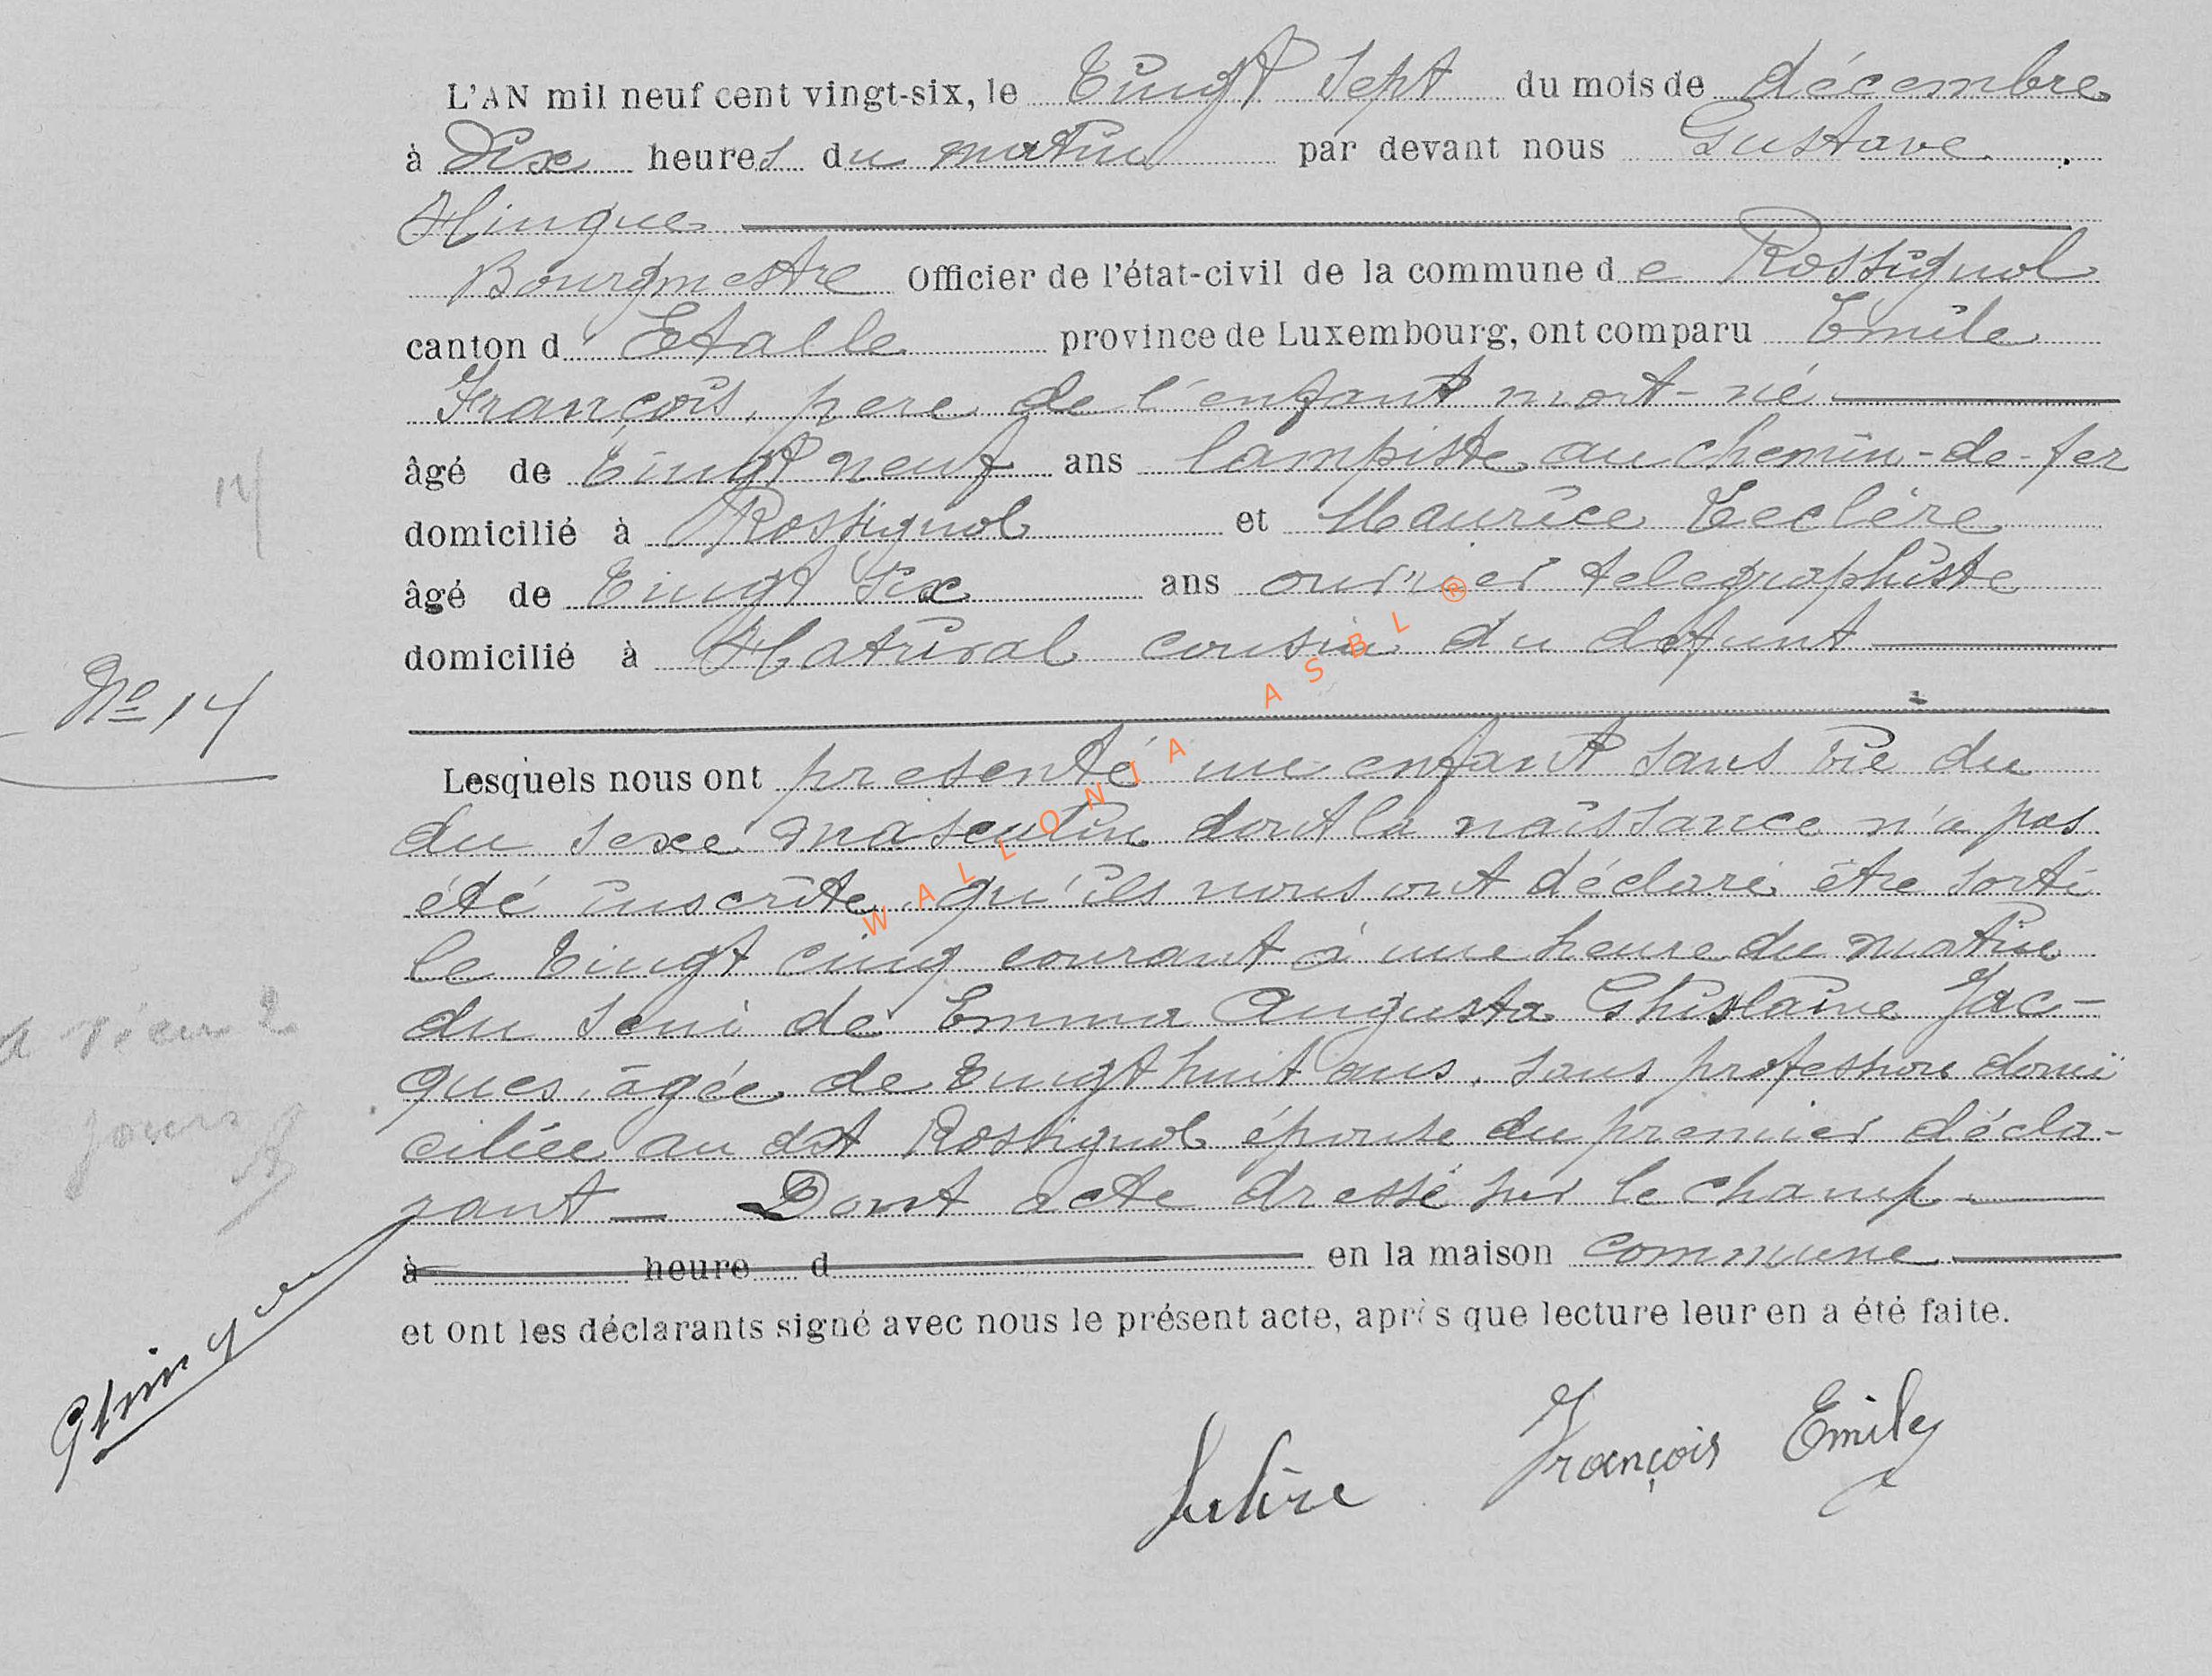 L'AN mil neuf cent vingt-six, le Vingt sept du mois de décembre
à Dix heures du matin par devant nous Gustave
Hinque
Bourgmestre Officier de l'état-civil de la commune de Rossignol
canton d' Etalle province de Luxembourg, ont comparu Emile
François, pere de l'enfant mort-né
14
âgé de Vingt neuf ans lampiste au chemin-de-fer
domicilié à Rossignol et Maurice Leclère
âgé de Vingt six ans ouvrier telegraphiste
domicilié à Hatrival cousin du défunt
No 14
Lesquels nous ont presenté un enfant sans vie du
du sexe masculin dont la naissance n'a pas
été inscrite, qu'ils nous ont déclaré être sorti
le Vingt cinq courant à une heure du matin
du sein de Emma Augusta Ghislaine Jac-
ques, âgée de Vingt huit ans, sans profession domi
ciliée au dit Rossignol épouse du premier décla-
rant — Dont acte dressé sur le champ
à heure d en la maison commune
et ont les déclarants signé avec nous le présent acte, après que lecture leur en a été faite.
Leclère François Emile
WALLONIA ASBL ®